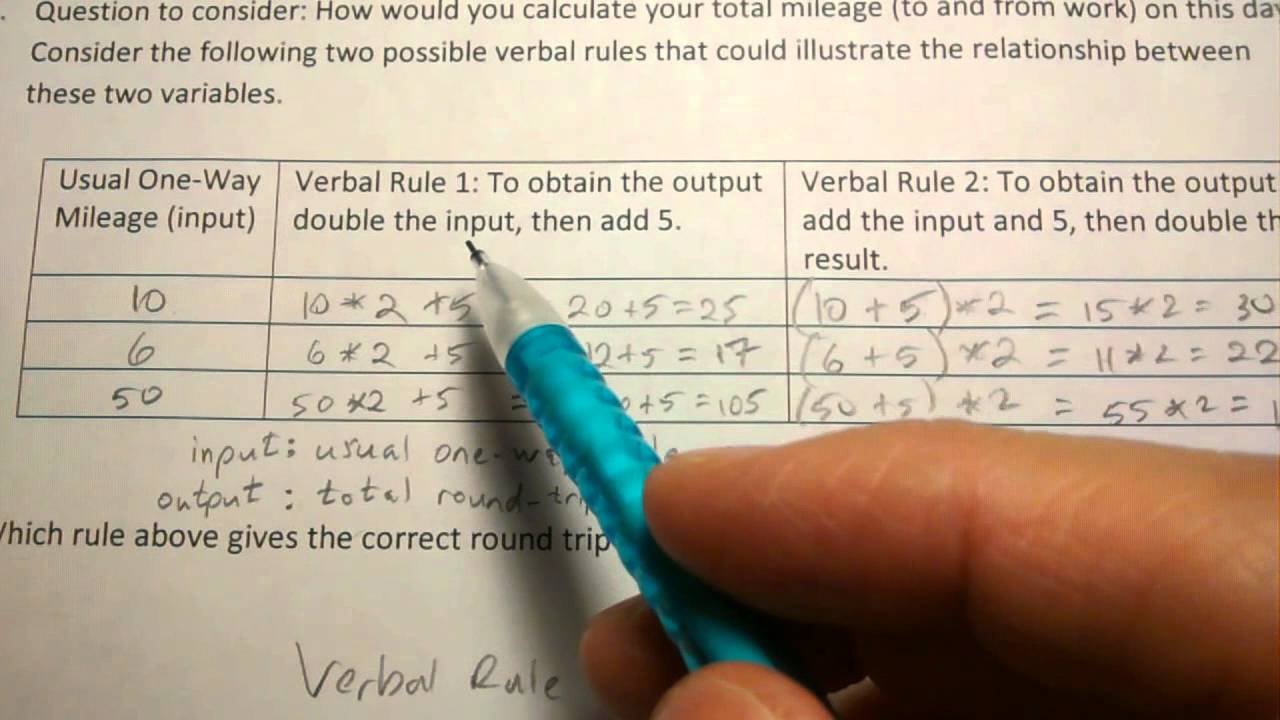 . Question to consider: How would you calculate your total mileage (to and from work) on this day
Consider the following two possible verbal rules that could illustrate the relationship between
these two variables.
Usual One-Way
Mileage (input)
Verbal Rule 1: To obtain the output
double the input, then add 5.
Verbal Rule 2: To obtain the output
add the input and 5, then double th
result.
10
10 * 2 +5 20+5=25
(10 + 5) * 2 = 15 * 2 = 30
6
6 * 2 +5 12+5 = 17
(6 + 5) * 2 = 11 * 2 = 22
50
50 *2 +5 = 0+5 = 105
(50 +5) * 2 = 55 * 2 = 1
input: usual one-w
output: total round-trip
Which rule above gives the correct round trip
Verbal Rule